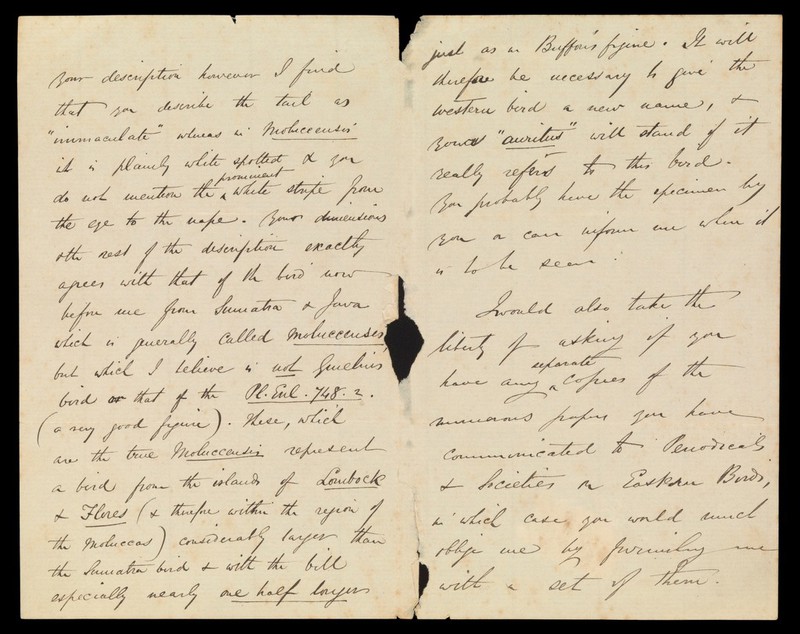 your description however I find
that you describe the tail as
"immaculate" whereas in Moluccensis
it is plainly white spotted & you
do not mention the prominent white stripe from
the eye to the nape. Your dimensions
& the rest of the description exactly
agrees with that of the bird now
before me from Sumatra & Java
which is generally called Moluccensis,
but which I believe is not Gmelin's
bird or that of the Pl. Enl. 748.2.
(a very good figure). These, which
are the true Moluccensis represent
a bird from the islands of Lombock
& Flores (& therefore within the region of
the Moluccas) considerably larger than
the Sumatra bird & with the bill
especially nearly one half longer
just as in Buffon's figure. It will
therefore be necessary to give the
western bird a new name, &
your "auritus" will stand if it
really refers to this bird.
You probably have the specimen by
you or can inform me where it
is to be seen.
I would also take the
liberty of asking if you
have any separate copies of the
numerous papers you have
communicated to Periodicals
& Societies on Eastern Birds,
in which case you would much
oblige me by furnishing me
with a set of them.